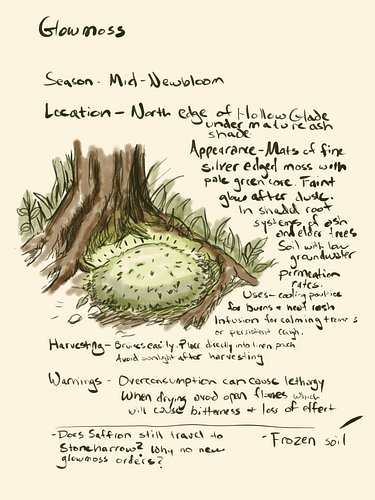 Glowmoss
Season. Mid-Newbloom
Location - North edge of Hollow Glade
under mature ash
shade.
Appearance - Mats of fine
silver edged moss with
pale green core. Faint
glow after dusk.
In shaded root
systems of ash
and elder trees
Soil with low
groundwater
permeation
rates.
Uses - cooling poultice
for burns & heat rash
Infusion for calming tremors
or persistent cough.
Harvesting - Bruises easily. Place directly into linen pouch
Avoid sunlight after harvesting.
Warnings - Overconsumption can cause lethargy
When drying avoid open flames which
will cause bitterness & loss of effect
- Does Saffron still travel to
Stoneharrow? Why no new
glowmoss orders?
- Frozen soil